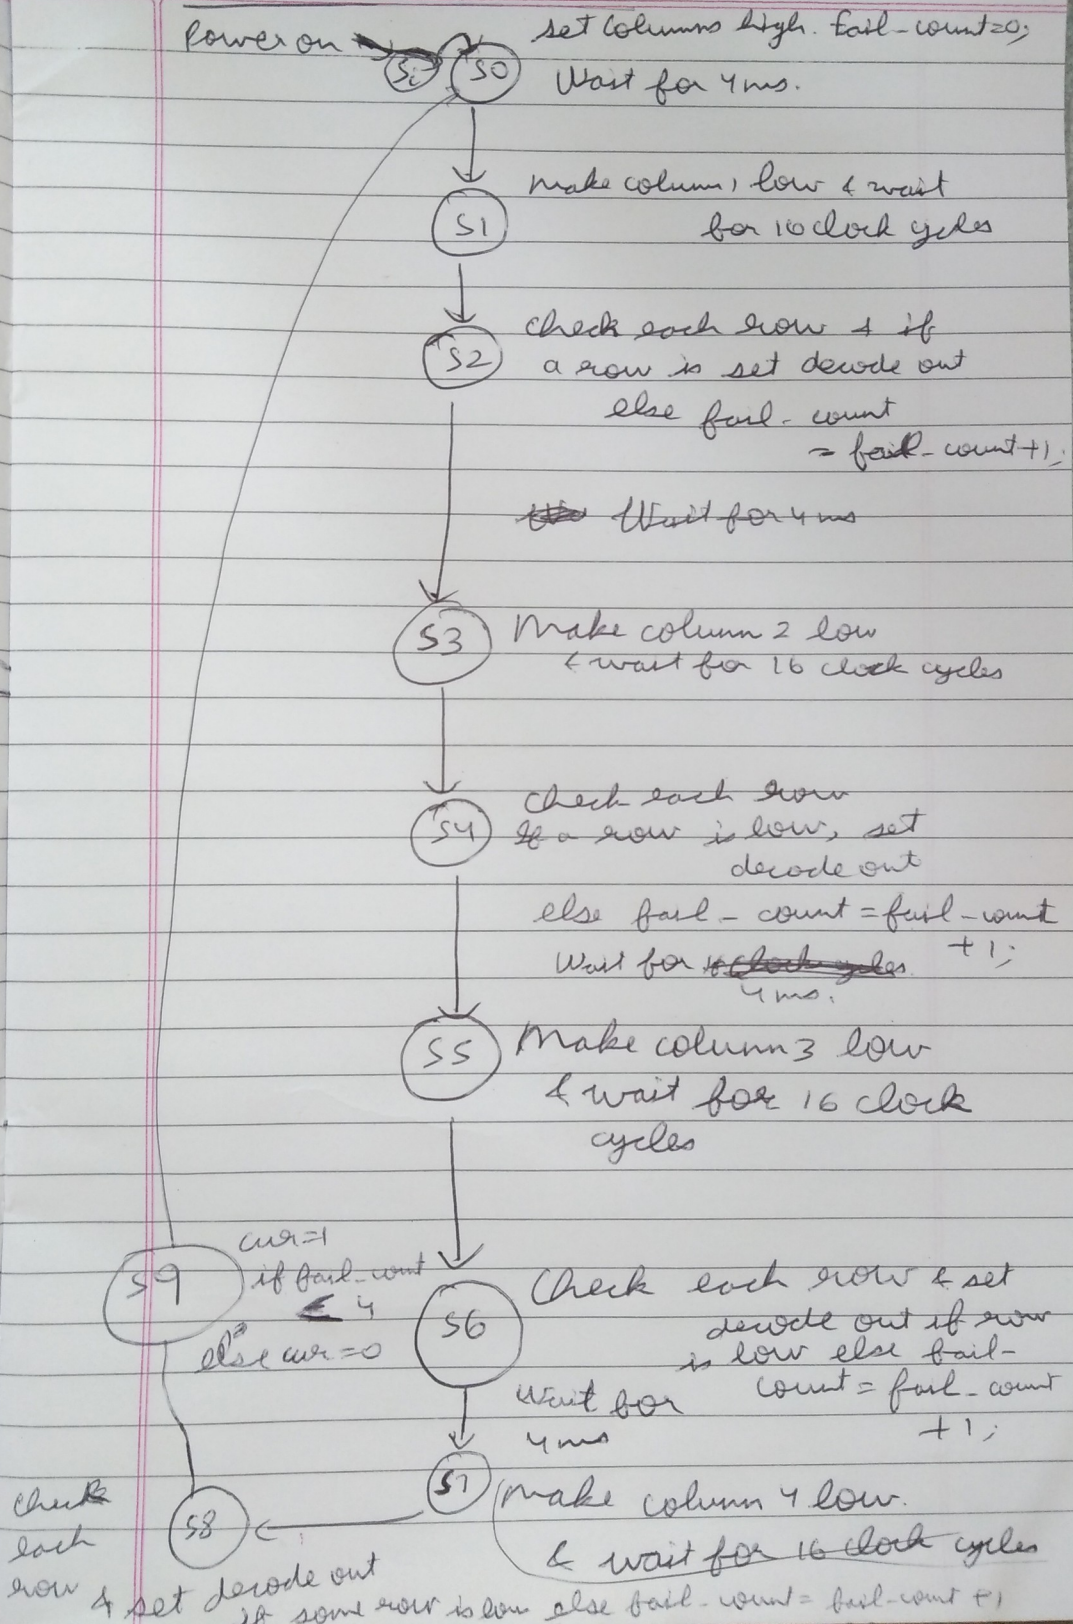 Power on
Si
S0
set columns high. fail-count=0;
Wait for 4ms.
S1
Make column 1 low & wait
for 16 clock cycles
S2
Check each row & if
a row is set decode out
else fail-count
= fail-count+1;
Wait for 4 ms
S3
Make column 2 low
& wait for 16 clock cycles
S4
Check each row
If a row is low, set
decode out
else fail-count = fail-count
+1;
Wait for
4 ms.
S5
Make column 3 low
& wait for 16 clock
cycles
S9
cur=1
if fail-count
4
else cur=0
S6
Check each row & set
decode out if row
is low else fail-
count = fail-count
+1;
Wait for
4 ms
S7
Make column 4 low.
& wait for 16 clock cycles
S8
Check
each
row & set decode out
if some row is low else fail-count = fail-count +1